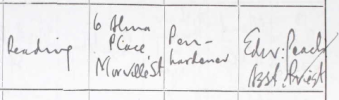 Reading
6 Alma
Place
Morville St
Pen-
hardener
Edw: Peach
Asst. Priest